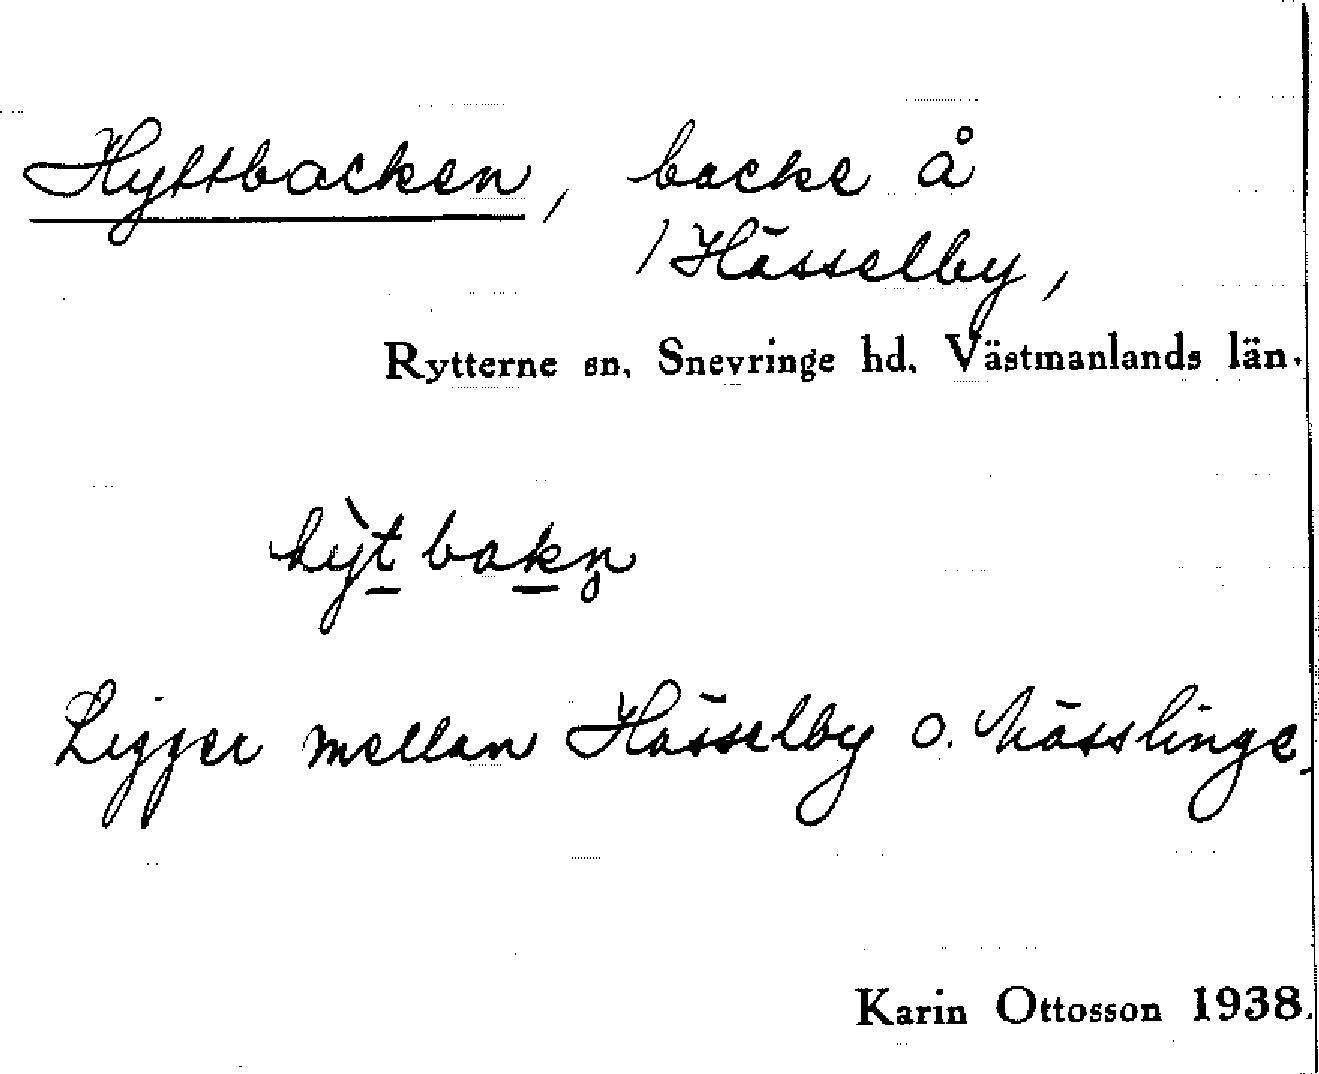 Hyttbacken, backe å
/ Hässelby,
Rytterne sn. Snevringe hd. Västmanlands län.
hỳt bakn̥
Ligger mellan Hässelby o. Nässlinge.
Karin Ottosson 1938.